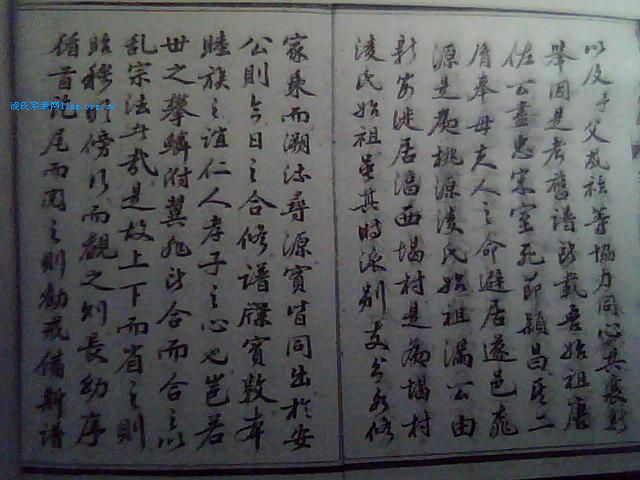 以及予父叔祖等協力同心共襄斯
舉因是考舊譜所載吾始祖唐
佐公盡忠宋室死節潁昌其二
脩奉母夫人之命避居遂邑桃
源是為桃源淩氏始祖漏公由
新安遷居溈西塌村是為塌村
淩氏始祖矣其時派别支分各修
家乘而溯流尋源實皆同出於安
公則今日之合修譜牒實敦本
睦族之誼仁人孝子之心也豈若
世之攀鱗附翼非所合而合之以
乱宗法者哉是故上下而省之則
昭穆明傍行而觀之則長幼序
循首訖尾而閲之則勸戒備斯譜
凌氏宗亲网ling.org.cn